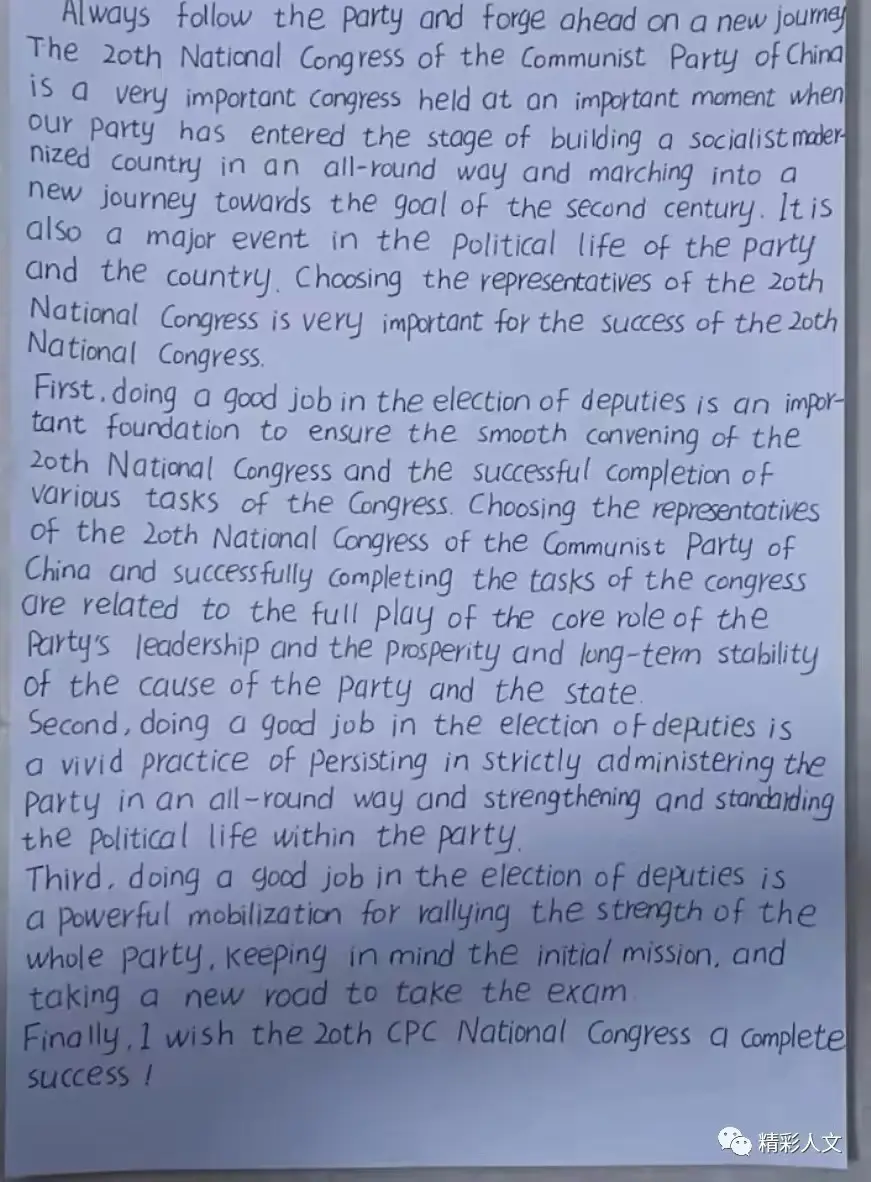 Always follow the Party and forge ahead on a new journey
The 20th National Congress of the Communist Party of China
is a very important congress held at an important moment when
our party has entered the stage of building a socialist moder-
nized country in an all-round way and marching into a
new journey towards the goal of the second century. It is
also a major event in the political life of the party
and the country. Choosing the representatives of the 20th
National Congress is very important for the success of the 20th
National Congress.
First, doing a good job in the election of deputies is an impor-
tant foundation to ensure the smooth convening of the
20th National Congress and the successful completion of
various tasks of the Congress. Choosing the representatives
of the 20th National Congress of the Communist Party of
China and successfully completing the tasks of the congress
are related to the full play of the core role of the
Party's leadership and the prosperity and long-term stability
of the cause of the Party and the state.
Second, doing a good job in the election of deputies is
a vivid practice of persisting in strictly administering the
Party in an all-round way and strengthening and standarding
the political life within the party.
Third, doing a good job in the election of deputies is
a powerful mobilization for rallying the strength of the
whole party, keeping in mind the initial mission, and
taking a new road to take the exam.
Finally, I wish the 20th CPC National Congress a complete
success!
精彩人文